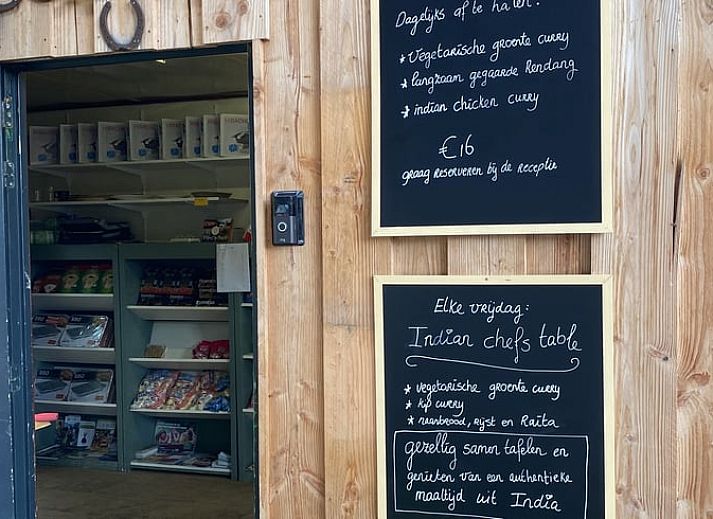 Dagelijks af te halen:
* Vegetarische groente curry
* langzaam gegaarde Rendang
* indian chicken curry
€16
graag reserveren bij de receptie
Elke vrijdag:
Indian chefs table
* vegetarische groente curry
* kip curry
* naanbrood, rijst en Raita
gezellig samen tafelen en
genieten van een authentieke
maaltijd uit India